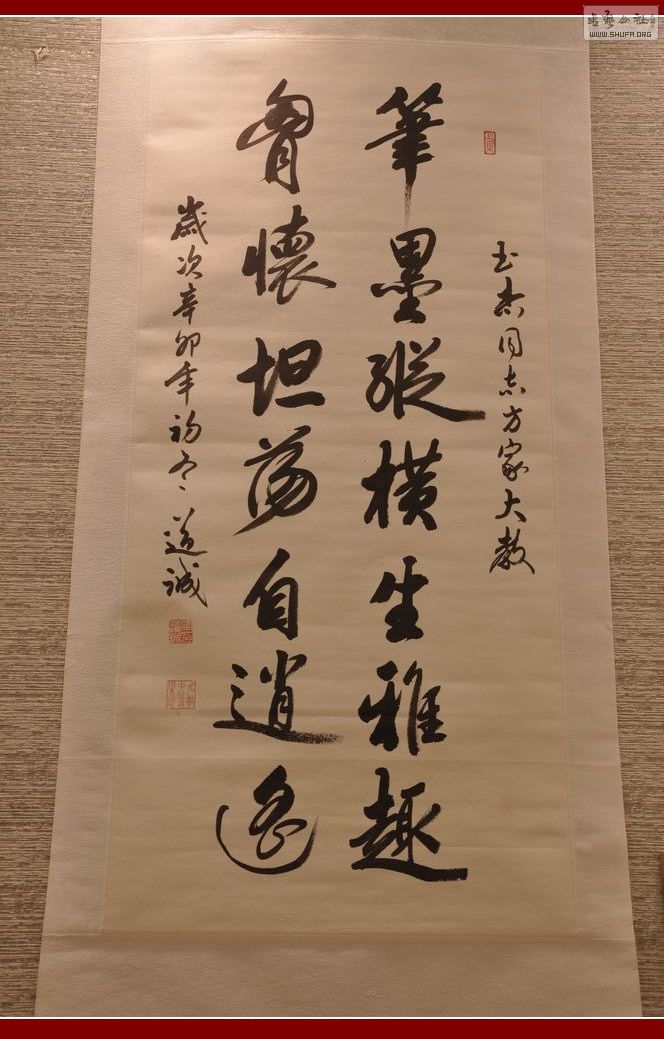 玉杰同志方家大教
筆墨縱橫生雅趣
胷懷坦蕩自逍遙
歲次辛卯年初冬道誠
書藝公社
WWW.SHUFA.ORG